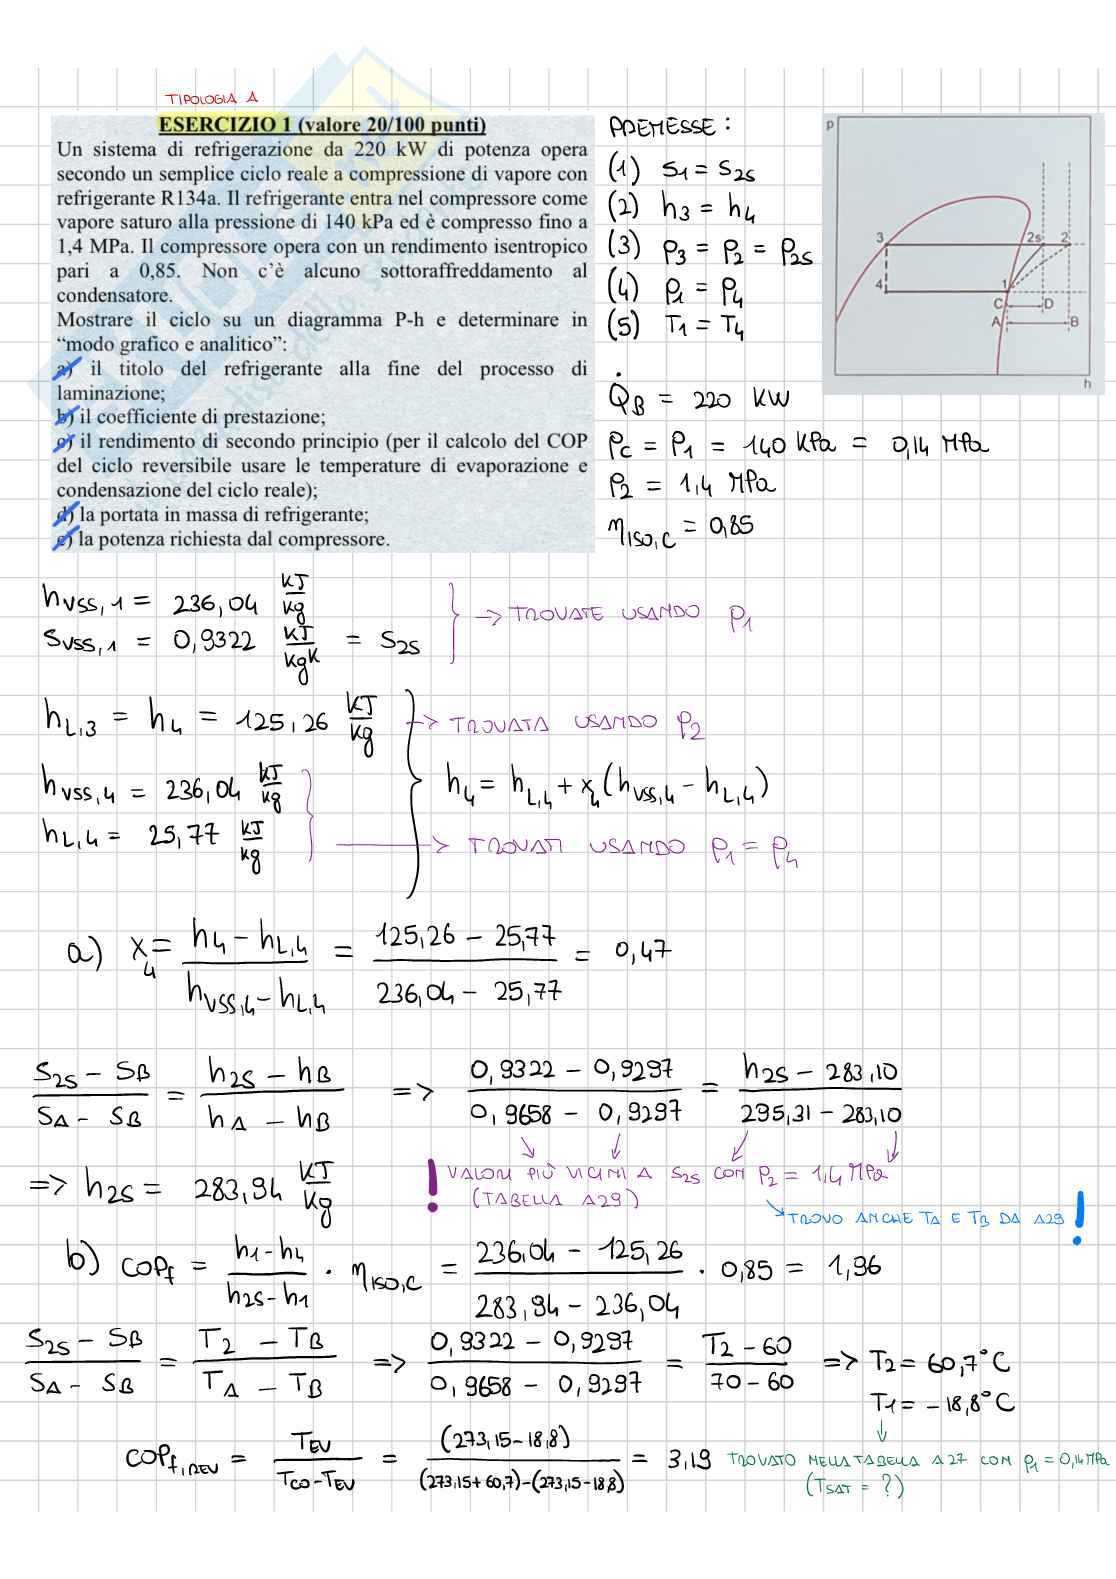 TIPOLOGIA A
ESERCIZIO 1 (valore 20/100 punti)
Un sistema di refrigerazione da 220 kW di potenza opera
secondo un semplice ciclo reale a compressione di vapore con
refrigerante R134a. Il refrigerante entra nel compressore come
vapore saturo alla pressione di 140 kPa ed è compresso fino a
1,4 MPa. Il compressore opera con un rendimento isentropico
pari a 0,85. Non c'è alcuno sottoraffreddamento al
condensatore.
Mostrare il ciclo su un diagramma P-h e determinare in
“modo grafico e analitico”:
a) il titolo del refrigerante alla fine del processo di
laminazione;
b) il coefficiente di prestazione;
c) il rendimento di secondo principio (per il calcolo del COP
del ciclo reversibile usare le temperature di evaporazione e
condensazione del ciclo reale);
d) la portata in massa di refrigerante;
e) la potenza richiesta dal compressore.
PREMESSE :
(1) S1 = S2S
(2) h3 = h4
(3) P3 = P2 = P2S
(4) P1 = P4
(5) T1 = T4
Q̇B = 220 KW
PC = P1 = 140 KPa = 0,14 MPa
P2 = 1,4 MPa
ηISO,C = 0,85
p
3
2s
2
4
1
C
D
A
B
h
hVSS,1 = 236,04 KJ/kg
SVSS,1 = 0,9322 KJ/kgK = S2S
→ TROVATE USANDO P1
hL,3 = h4 = 125,26 KJ/kg → TROVATA USANDO P2
hVSS,4 = 236,04 KJ/kg
h4 = hL,4 + x4 (hVSS,4 - hL,4)
hL,4 = 25,77 KJ/kg → TROVATI USANDO P1 = P4
a) x4 = (h4 - hL,4)/(hVSS,4 - hL,4) = (125,26 - 25,77)/(236,04 - 25,77) = 0,47
(S2S - SB)/(SA - SB) = (h2S - hB)/(hA - hB) => (0,9322 - 0,9297)/(0,9658 - 0,9297) = (h2S - 283,10)/(295,31 - 283,10)
=> h2S = 283,94 KJ/kg
! VALORI PIÙ VICINI A S2S CON P2 = 1,4 MPa
(TABELLA A29)
→ TROVO ANCHE TA E TB DA A29 !
b) COPf = (h1 - h4)/(h2S - h1) · ηISO,C = (236,04 - 125,26)/(283,94 - 236,04) · 0,85 = 1,96
(S2S - SB)/(SA - SB) = (T2 - TB)/(TA - TB) => (0,9322 - 0,9297)/(0,9658 - 0,9297) = (T2 - 60)/(70 - 60) => T2 = 60,7°C
T1 = -18,8°C
COPf,REV = TEV/(TCO - TEV) = (273,15 - 18,8)/((273,15 + 60,7) - (273,15 - 18,8)) = 3,19
TROVATO NELLA TABELLA A27 CON P1 = 0,14 MPa
(TSAT = ?)